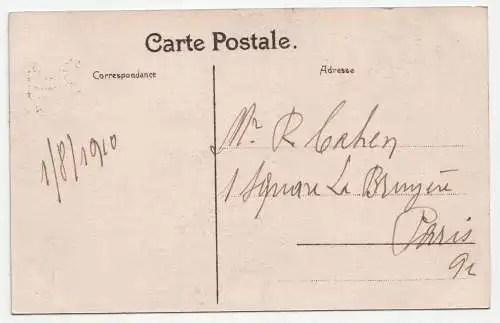 Carte Postale.
Correspondance
Adresse
1/8/1910
Mr R Cahen
1 Square La Bruyère
Paris
9e